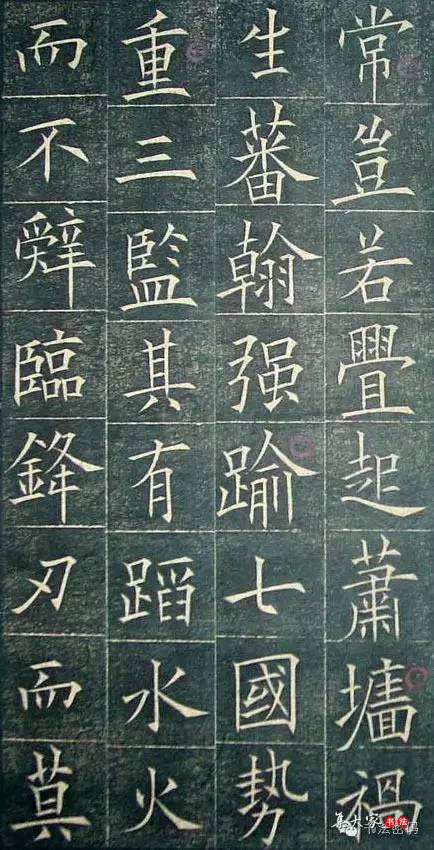 常豈若疊起蕭墻禍
生蕃翰强踰七國勢
重三監其有蹈水火
而不辤臨鋒刃而莫
集大家书法
书法密码